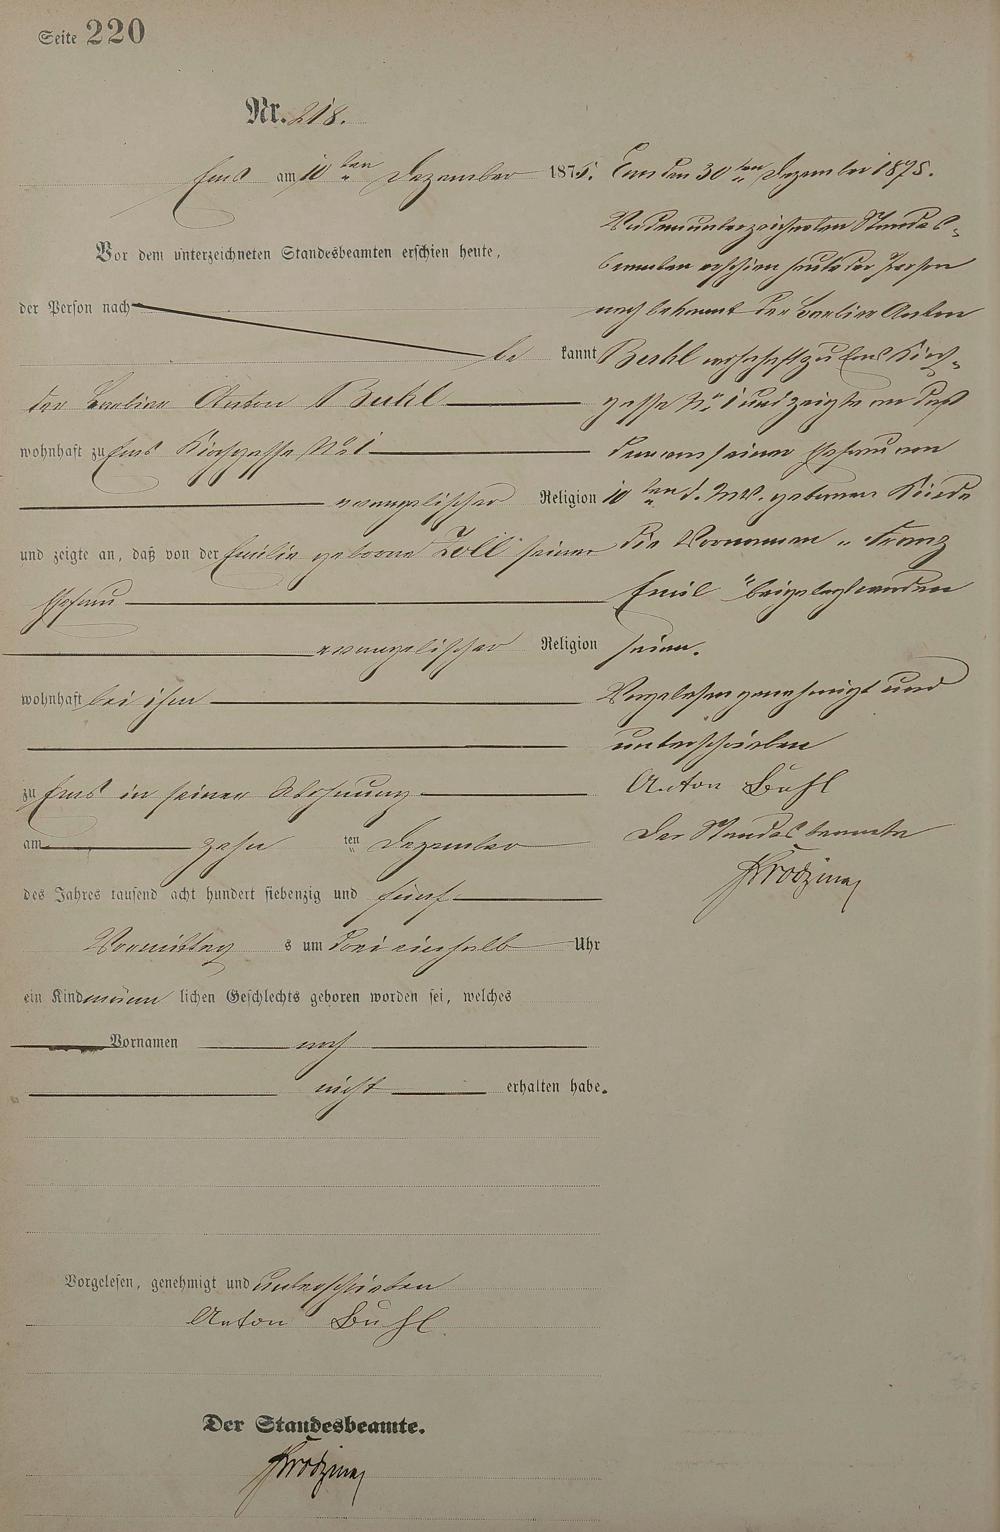 Seite 220
Nr. 218.
Ems am 10ten Dezember 1875.
Vor dem unterzeichneten Standesbeamten erschien heute,
der Person nach
be kannt
der Barbier Anton Buhl
wohnhaft zu Ems Kirchgasse No 1
evangelischer Religion
und zeigte an, daß von der Emilie geborne Zoll seiner
Ehefrau
evangelischer Religion
wohnhaft bei ihm
zu Ems in seiner Wohnung
am zehn ten Dezember
des Jahres tausend acht hundert siebenzig und fünf
Vormittag s um drei einhalb Uhr
ein Kind männ lichen Geschlechts geboren worden sei, welches
Vornamen noch
nicht erhalten habe.
Vorgelesen, genehmigt und unterschrieben
Anton Buhl
Der Standesbeamte.
Ems den 30ten Dezember 1875.
Vor dem unterzeichneten Standes-
beamten erschien heute der Person
nach bekannt der Barbier Anton
Buhl wohnhaft zu Ems Kirch-
gasse No 1 und zeigte an daß
dem von seiner Ehefrau am
10ten d. Mts. geborenen Kinde
die Vornamen „Franz
Emil“ beigelegt worden
seien.
Vorgelesen genehmigt und
unterschrieben
Anton Buhl
Der Standesbeamte